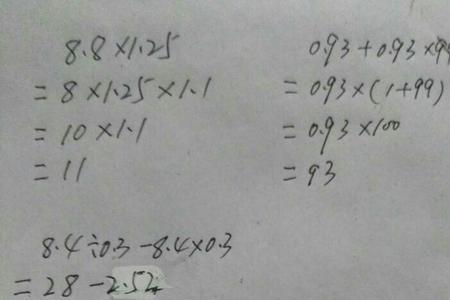 8.8×1.25
=8×1.25×1.1
=10×1.1
=11
0.93+0.93×99
=0.93×(1+99)
=0.93×100
=93
8.4÷0.3-8.4×0.3
=28-2.52